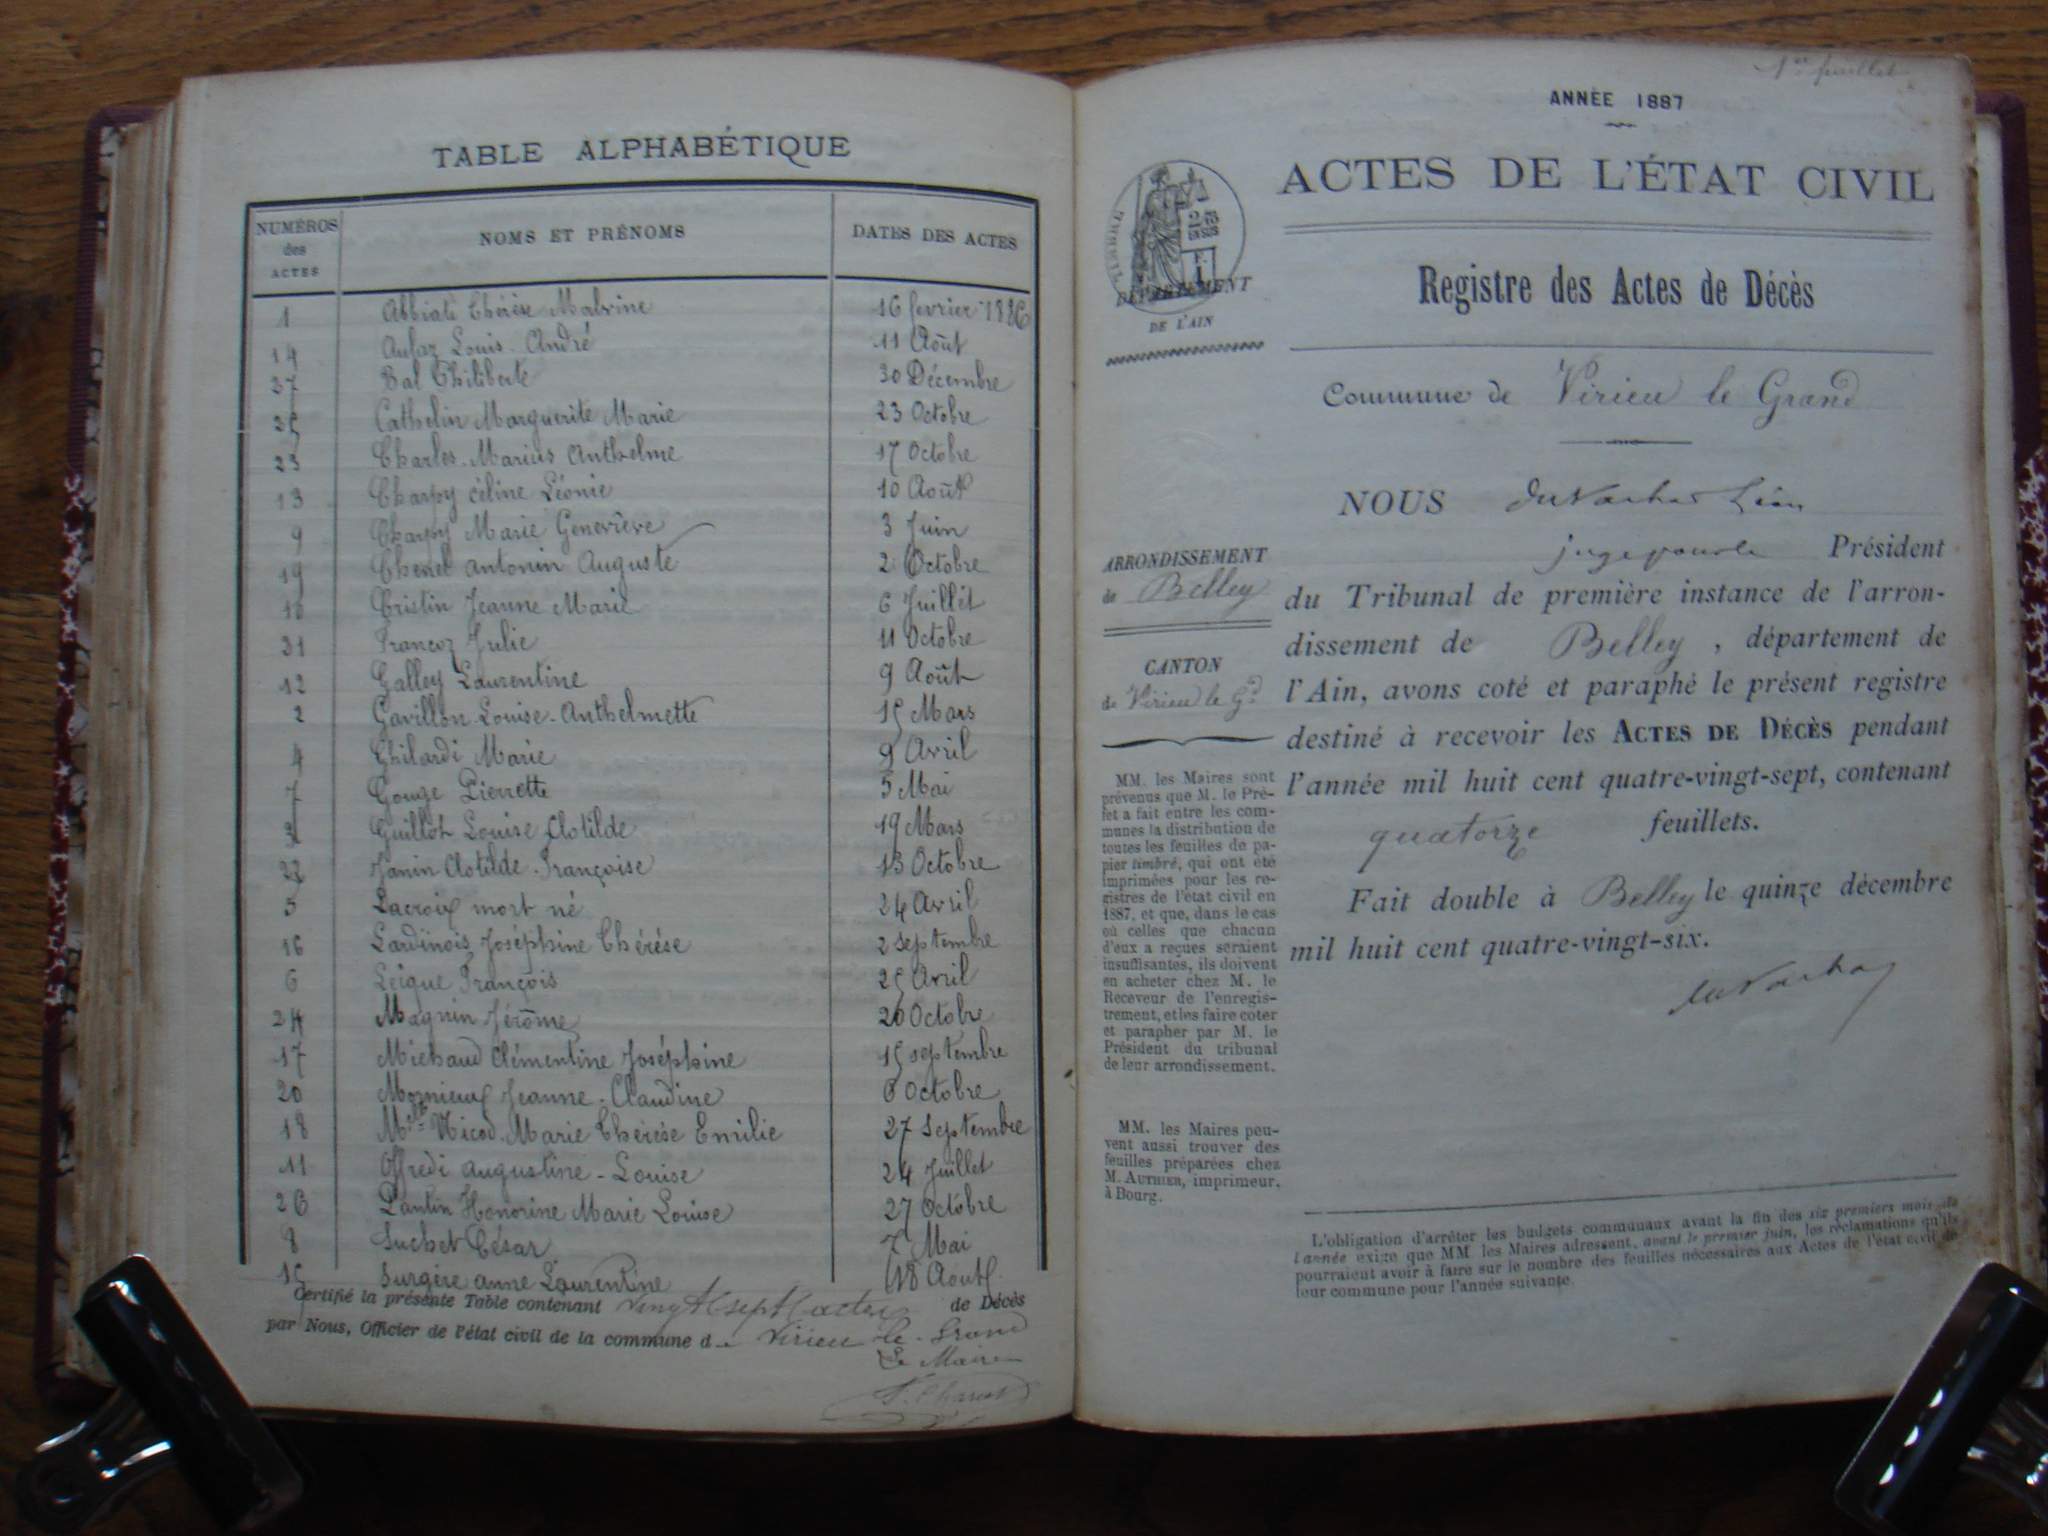 TABLE ALPHABÉTIQUE
NUMÉROS des ACTES NOMS ET PRÉNOMS DATES DES ACTES
1 Abbiati Thérèse Malvine 16 fevrier 1886
14 Aufaz Louis-André 11 Août
37 Bal Philiberte 30 Décembre
25 Cathelin Marguerite Marie 23 Octobre
23 Charles-Marius Anthelme 17 Octobre
13 Charpy Céline Léonie 10 Août
9 Charpy Marie Geneviève 3 Juin
19 Chenel Antonin Auguste 2 Octobre
10 Cristin Jeanne Marie 6 Juillet
21 Francoz Julie 11 Octobre
12 Galley Laurentine 9 Août
2 Gavillon-Louise-Anthelmette 15 Mars
4 Ghilardi Marie 9 Avril
7 Gouge Pierrette 5 Mai
3 Guillot Louise Clotilde 19 Mars
22 Janin Clotilde-Françoise 13 Octobre
5 Lacroix mort né 24 Avril
16 Lardinois Joséphine Thérése 2 septembre
6 Leique François 25 Avril
24 Magnin Jérôme 20 Octobre
17 Michaud Clémentine Joséphine 15 septembre
20 Mognieux Jeanne-Claudine 6 Octobre
18 Mlle Nicod-Marie Thérése Emilie 27 Septembre
11 Offredi Augustine-Louise 24 Juillet
26 Pantin Honorine Marie Louise 27 Octobre
8 Suchet César 7 Mai
15 Surgère anne Laurentine 18 Aout
Certifié la présente Table contenant Vingt sept actes de Décès
par Nous, Officier de l'état civil de la commune de Virieu-le-Grand
Le Maire
1er feuillet
ANNÉE 1887
ACTES DE L'ÉTAT CIVIL
DÉPARTEMENT
DE L'AIN
Registre des Actes de Décès
Commune de Virieu le Grand
NOUS
juge pour le Président
du Tribunal de première instance de l'arron-
dissement de Belley, département de
l'Ain, avons coté et paraphé le présent registre
destiné à recevoir les ACTES DE DÉCÈS pendant
l'année mil huit cent quatre-vingt-sept, contenant
quatorze feuillets.
Fait double à Belley le quinze décembre
mil huit cent quatre-vingt-six.
ARRONDISSEMENT
de Belley
CANTON
de Virieu le Gd
MM. les Maires sont
prévenus que M. le Pré-
fet a fait entre les com-
munes la distribution de
toutes les feuilles de pa-
pier timbré, qui ont été
imprimées pour les re-
gistres de l'état civil en
1887, et que, dans le cas
où celles que chacun
d'eux a reçues seraient
insuffisantes, ils doivent
en acheter chez M. le
Receveur de l'enregis-
trement, et les faire coter
et parapher par M. le
Président du tribunal
de leur arrondissement.
MM. les Maires peu-
vent aussi trouver des
feuilles préparées chez
M. AUTHIER, imprimeur,
à Bourg.
L'obligation d'arrêter les budgets communaux avant la fin des six premiers mois de
l'année exige que MM. les Maires adressent, avant le premier juin, les réclamations qu'ils
pourraient avoir à faire sur le nombre des feuilles nécessaires aux Actes de l'état civil de
leur commune pour l'année suivante.